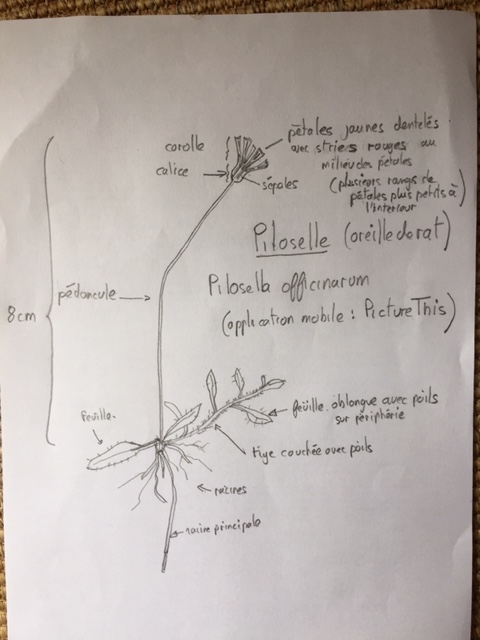 corolle
calice
pétales jaunes dentelés
avec striers rouges au
milieu des pétales
(plusieurs rangs de
pétales plus petits à
l'intérieur)
sépales
Piloselle (oreille de rat)
Pilosella officinarum
(application mobile : PictureThis)
8cm
pédoncule
feuille
feuille oblongue avec poils
sur périphérie
tige couchée avec poils
racines
racine principale